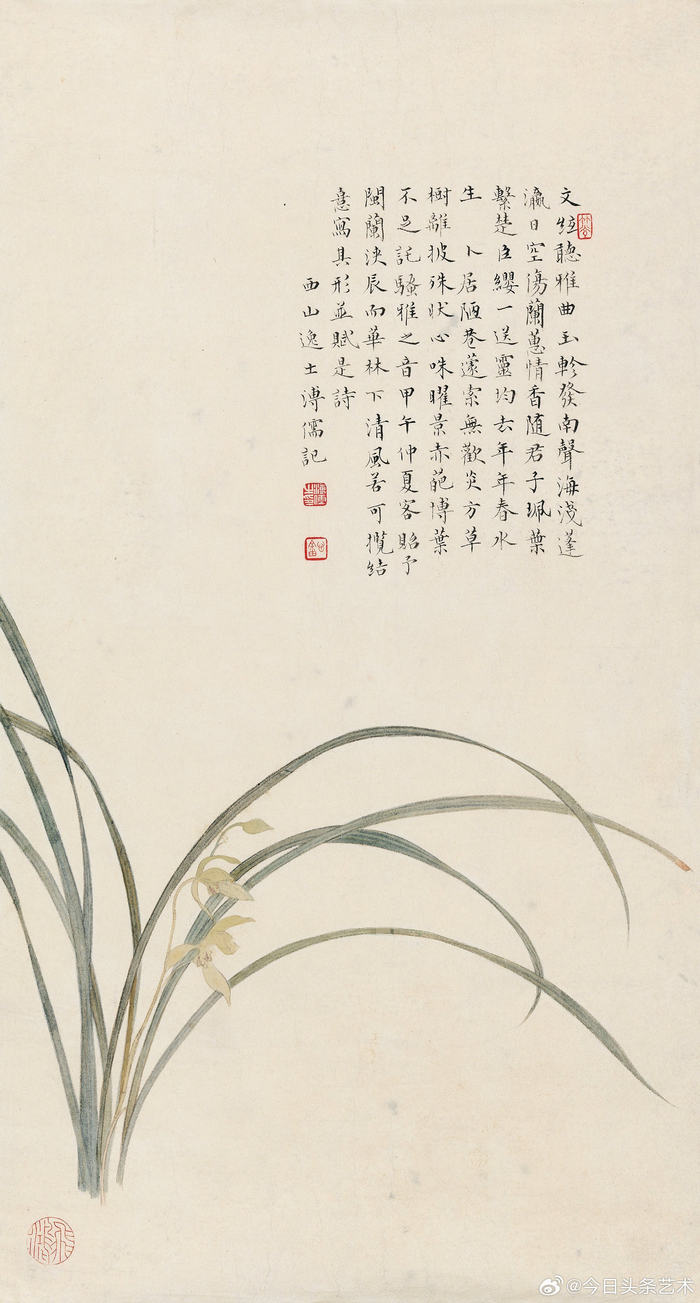 文絃聽雅曲玉軫發南聲海淺蓬
瀛日空傷蘭蕙情香随君子珮葉
繫楚臣纓一送靈均去年年春水
生 卜居陋巷索無歡炎方草
樹離披殊狀心咮曜景赤葩博葉
不足託騷雅之音甲午仲夏客貽予
閩蘭浹辰而華林下清風若可攬結
憙寫其形並賦是詩
西山逸士溥儒記
@今日头条艺术